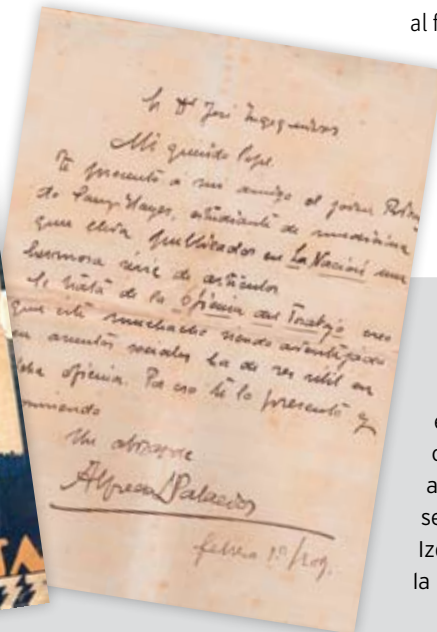 al f
Sr Dr José Ingegnieros
Mi querido Pepe
Te presento a mi amigo el joven
de estudiante de medicina
que lleva publicados en La Nación una
hermosa serie de artículos
Se trata de la Oficina del Trabajo creo
que este muchacho siendo aventajado
en asuntos sociales ha de ser útil en
oficina. Por eso te lo presento y
Un abrazo de
Alfredo L Palacios
febrero 1º/909.
TA
e
c
a
se
Iz
la